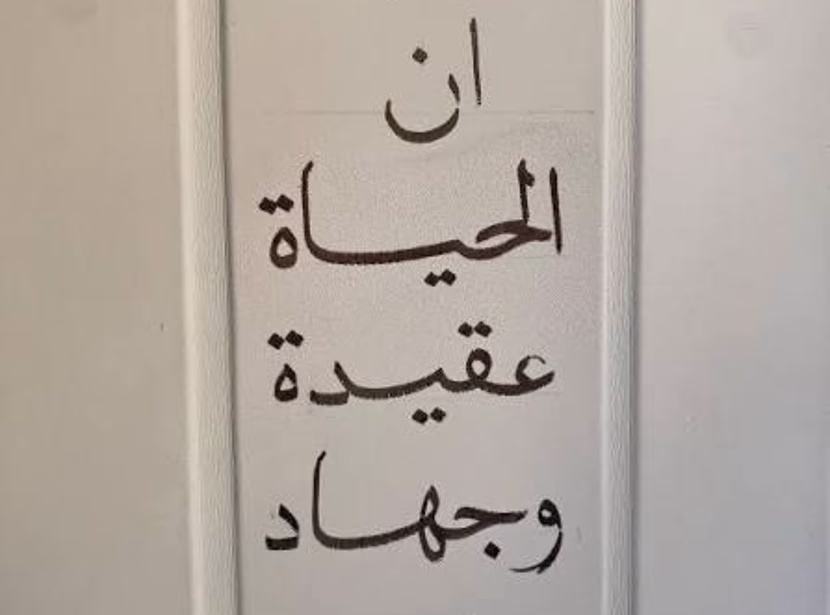 ان
الحياة
عقيدة
وجهاد